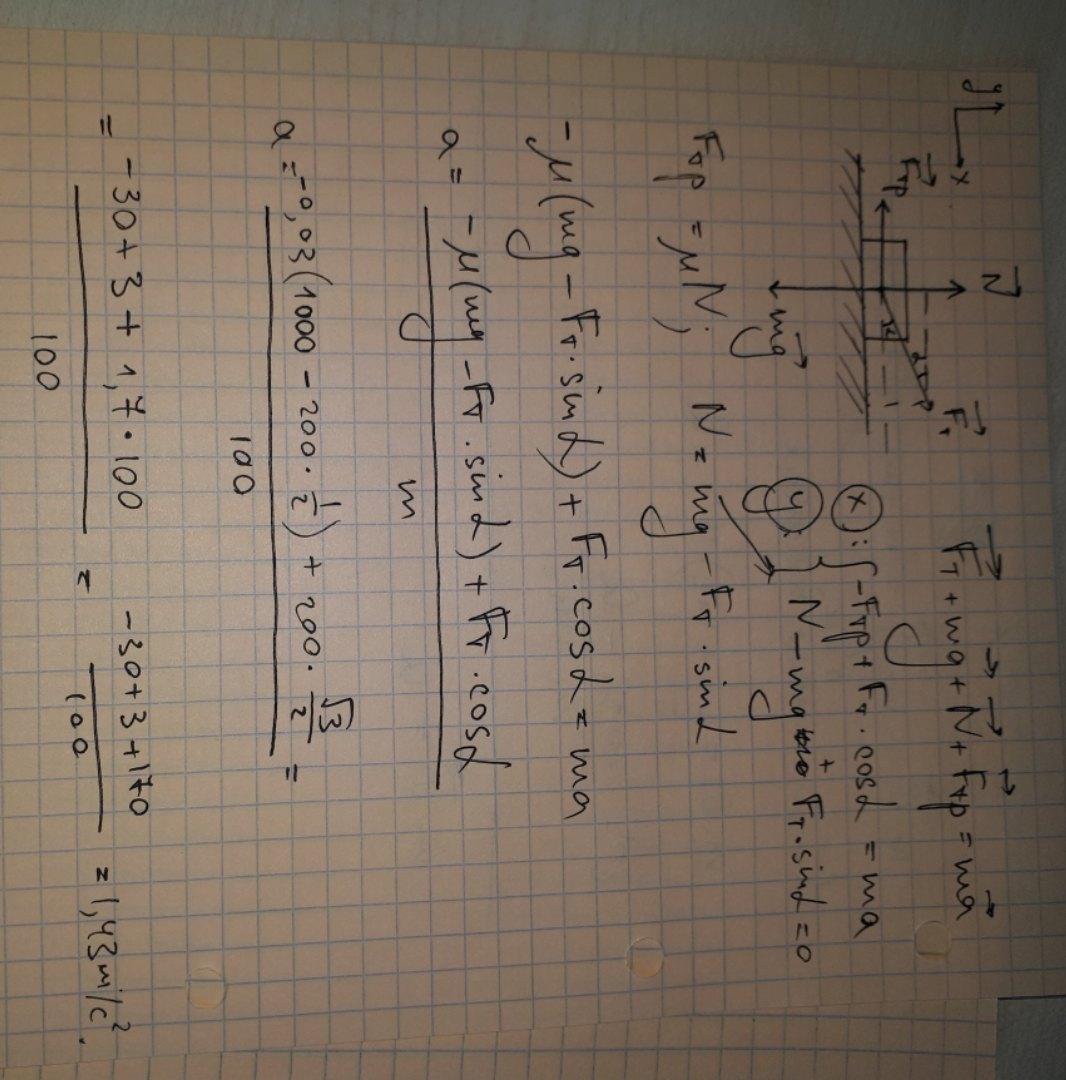 y x
N
Fтр Fт α
mg
Fт + mg + N + Fтр = ma
x : { -Fтр + Fт · cosα = ma
y : N - mg + Fт · sinα = 0
Fтр = μN; N = mg - Fт · sinα
-μ(mg - Fт · sinα) + Fт · cosα = ma
a = -μ(mg - Fт · sinα) + Fт · cosα
m
a = -0,03(1000 - 200 · 1/2) + 200 · √3/2 =
100
= -30 + 3 + 1,7 · 100 / 100 = -30 + 3 + 170 / 100 = 1,43 м/с².